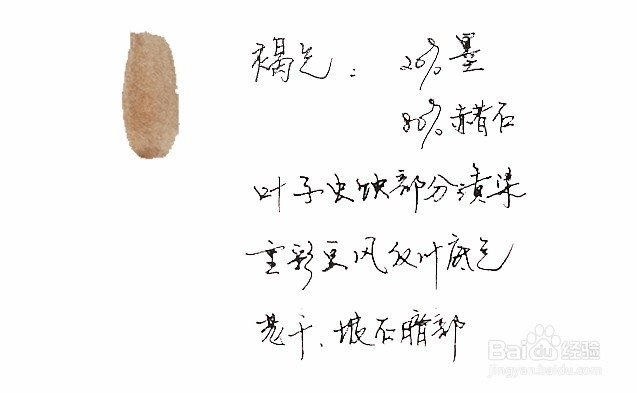 褐色：20%墨
80%赭石
叶子虫蚀部分渍染
重彩豆风反叶底色
老干、坡石暗部
Baidu经验
jingyan.baidu.com